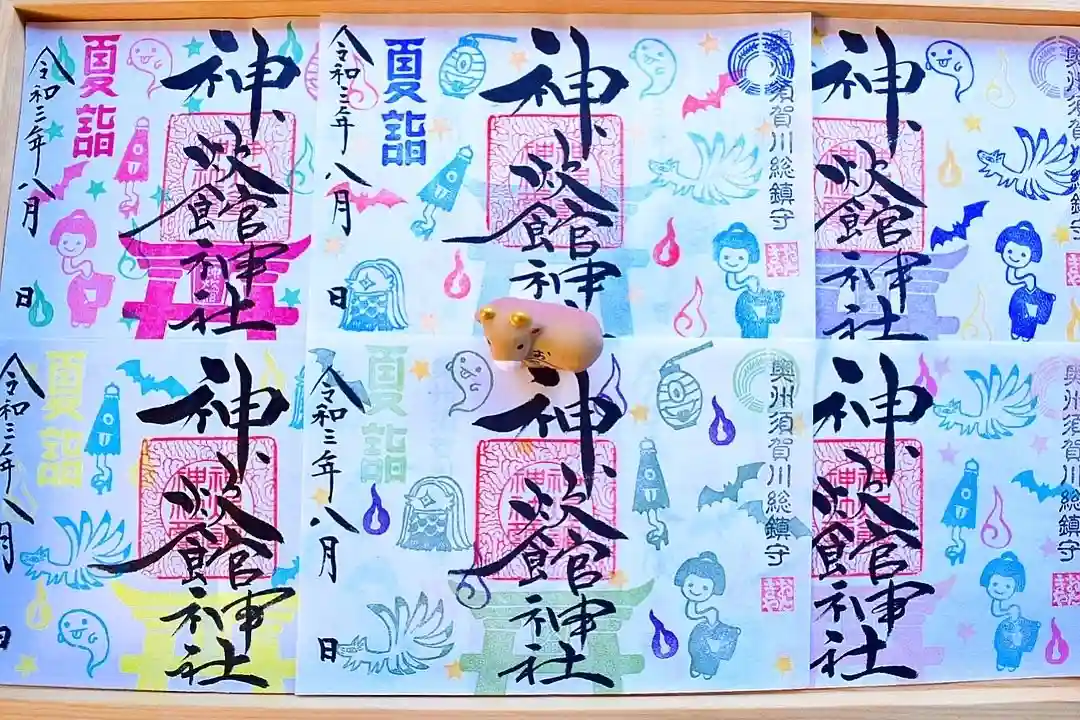 奥州須賀川総鎮守
神炊館神社
奥州須賀川総鎮守
神炊館神
夏詣
令和三年八月 日
神炊館神社
夏詣
令和三年八月 日
奥州須賀川総鎮守
神炊館神社
奥州須賀川総鎮守
神炊館神社
夏詣
令和三年八月 日
神炊館神社
夏詣
令和三年八月 日